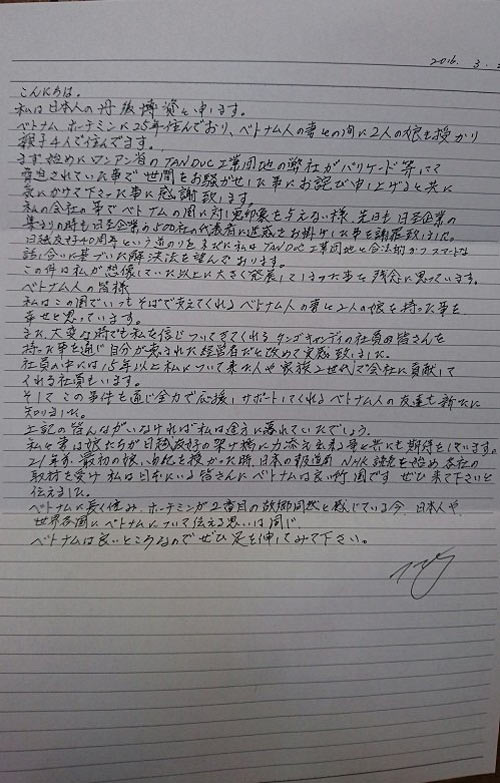 2016. 3. 3
こんにちは。
私は日本人の丹後博資と申します。
ベトナム ホーチミンに25年住んでおり、ベトナム人の妻との間に2人の娘を授かり
親子4人で住んでます。
まず始めにロンアン省のTAN DUC工業団地の弊社がバリケード等にて
脅迫されていた事で世間をお騒がせした事にお詫び申し上げると共に
気にかけて下さった事に感謝致します。
私の会社の事でベトナムの国に対し悪印象を与えない様、先日も日系企業の
集まりの時も日系企業の代表者に迷惑をお掛けした事を謝罪致しました。
日越友好40周年という道のりを
TAN DUC工業団地と合法的かつスマートな
話し合いに基づいた解決法を望んでおります。
この件は私が想像していた以上に大きく発展してしまった事を残念に思っています。
ベトナム人の皆様
私はこの国でいつもそばで支えてくれるベトナム人の妻と2人の娘を持った事を
幸せと思っています。
また、大変な時でも私を信じついてきてくれるタンゴキャンディの社員の皆さんを
持った事を通じ自分が恵まれた経営者だと改めて実感致しました。
社員の中には15年以上私について来た人や家族2世代で会社に貢献して
くれる社員もいます。
そしてこの事件を通じ全力で応援しサポートしてくれるベトナム人の友達も新たに
知りました。
上記の皆んながいなければ私は途方に暮れていたでしょう。
私と妻は娘たちが日越友好の架け橋に力添え出来る事と共にも期待をしています。
21年前、最初の娘を授かった時、日本の報道局 NHK 読売を始め各社の
取材を受け 私は日本にいる皆さんにベトナムは良い国です ぜひ来て下さいと
伝えました。
ベトナムに長く住み、ホーチミンが2番目の故郷同然と感じている今、日本人や
世界各国にベトナムについて伝える思いは同じ
ベトナムは良いところなのでぜひ足を伸してみて下さい。